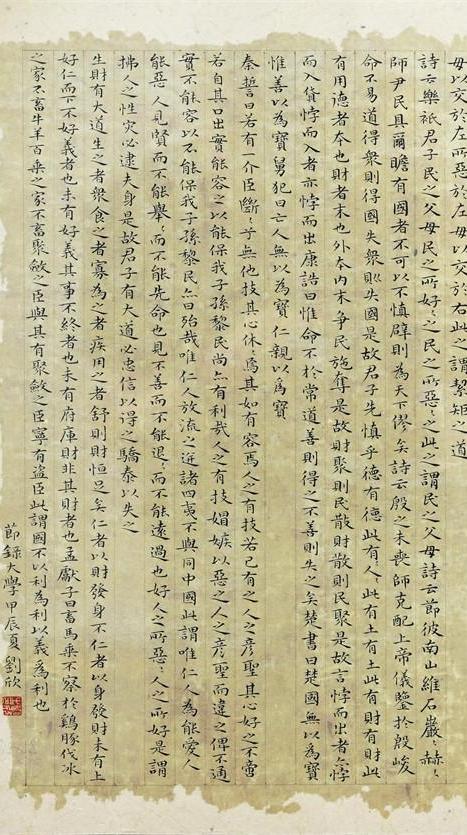 毋以交於左所惡於左毋以交於右此之謂絜矩之道
詩云樂衹君子民之父母民之所好〻之民之所惡〻之此之謂民之父母詩云節彼南山維石巖〻赫〻
師尹民具爾瞻有國者不可以不慎辟則為天下僇矣詩云殷之未喪師克配上帝儀鑒於殷峻
命不易道得衆則得國失衆則失國是故君子先慎乎德有德此有人〻此有土有土此有財有財此
有用德者本也財者末也外本內末争民施奪是故財聚則民散財散則民聚是故言悖而出者亦悖
而入貨悖而入者亦悖而出康誥曰惟命不於常道善則得之不善則失之矣楚書曰楚國無以為寶
惟善以為寶舅犯曰亡人無以為寶仁親以為寶
秦誓曰若有一介臣斷〻兮無他技其心休〻焉其如有容焉人之有技若己有之人之彦聖其心好之不啻
若自其口出實能容之以能保我子孫黎民尚亦有利哉人之有技媢嫉以惡之人之彦聖而違之俾不通
實不能容以不能保我子孫黎民亦曰殆哉唯仁人放流之迸諸四夷不與同中國此謂唯仁人為能愛人
能惡人見賢而不能舉〻而不能先命也見不善而不能退〻而不能遠過也好人之所惡〻人之所好是謂
拂人之性灾必逮夫身是故君子有大道必忠信以得之驕泰以失之
生財有大道生之者衆食之者寡為之者疾用之者舒則財恒足矣仁者以財發身不仁者以身發財未有上
好仁而下不好義者也未有好義其事不終者也未有府庫財非其財者也孟獻子曰畜馬乘不察於鷄豚伐冰
之家不畜牛羊百乘之家不畜聚斂之臣與其有聚斂之臣寧有盜臣此謂國不以利為利以義為利也
節錄大學甲辰夏劉欣